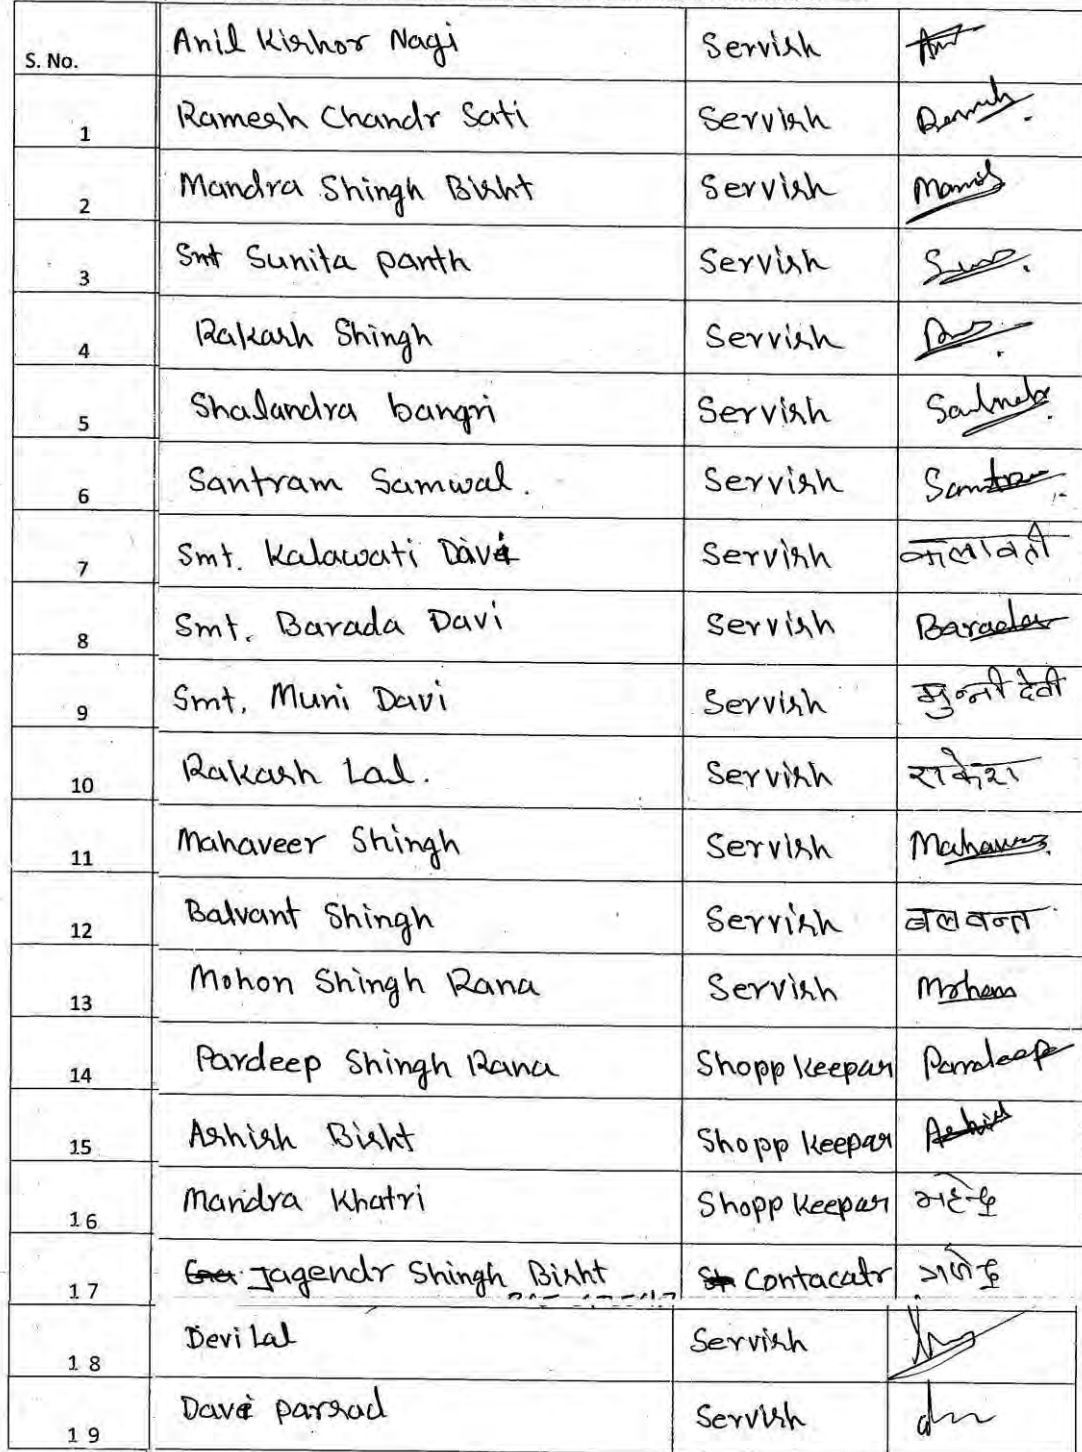 S. No. Anil Kishor Nagi Servish
1 Ramesh Chandr Sati Servish
2 Mandra Shingh Bisht Servish
3 Smt Sunita panth Servish
4 Rakash Shingh Servish
5 Shalandra bangri Servish
6 Santram Samwal. Servish
7 Smt. Kalawati Davi Servish कलावती
8 Smt. Barada Davi Servish Barada
9 Smt. Muni Davi Servish मुन्नी देवी
10 Rakash Lal. Servish राकेश
11 Mahaveer Shingh Servish
12 Balvant Shingh Servish बलवन्त
13 Mohon Shingh Rana Servish Mohan
14 Pardeep Shingh Rana Shopp keepar Paradeep
15 Ashish Bisht Shopp keepar Ashish
16 Mandra Khatri Shopp keepar
17 Jagendr Shingh Bisht Contacatr
18 Devi Lal Servish
19 Davi parsad Servish